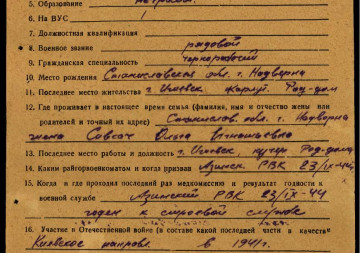 5. Образование
6. На ВУС
7. Должностная квалификация
8. Военное звание рядовой
9. Гражданская специальность чернорабочий
10. Место рождения Станиславская обл. г. Надворна
11. Последнее место жительства г. Ижевск
12. Где проживает в настоящее время семья (фамилия, имя и отчество жены или
родителей и точный их адрес) Станислав. обл. г. Надворна
жена Ольга
13. Последнее место работы и должность г. Ижевск кучер Род-дома
14. Каким райгорвоенкоматом и когда призван РВК 23/IX-44
15. Когда и где проходил последний раз медкомиссию и результат годности к
военной службе РВК 23/IX-44
годен к строевой службе
16. Участие в Отечественной войне (в составе какой последней части и в качестве
Киевское направл. в 1941 г.